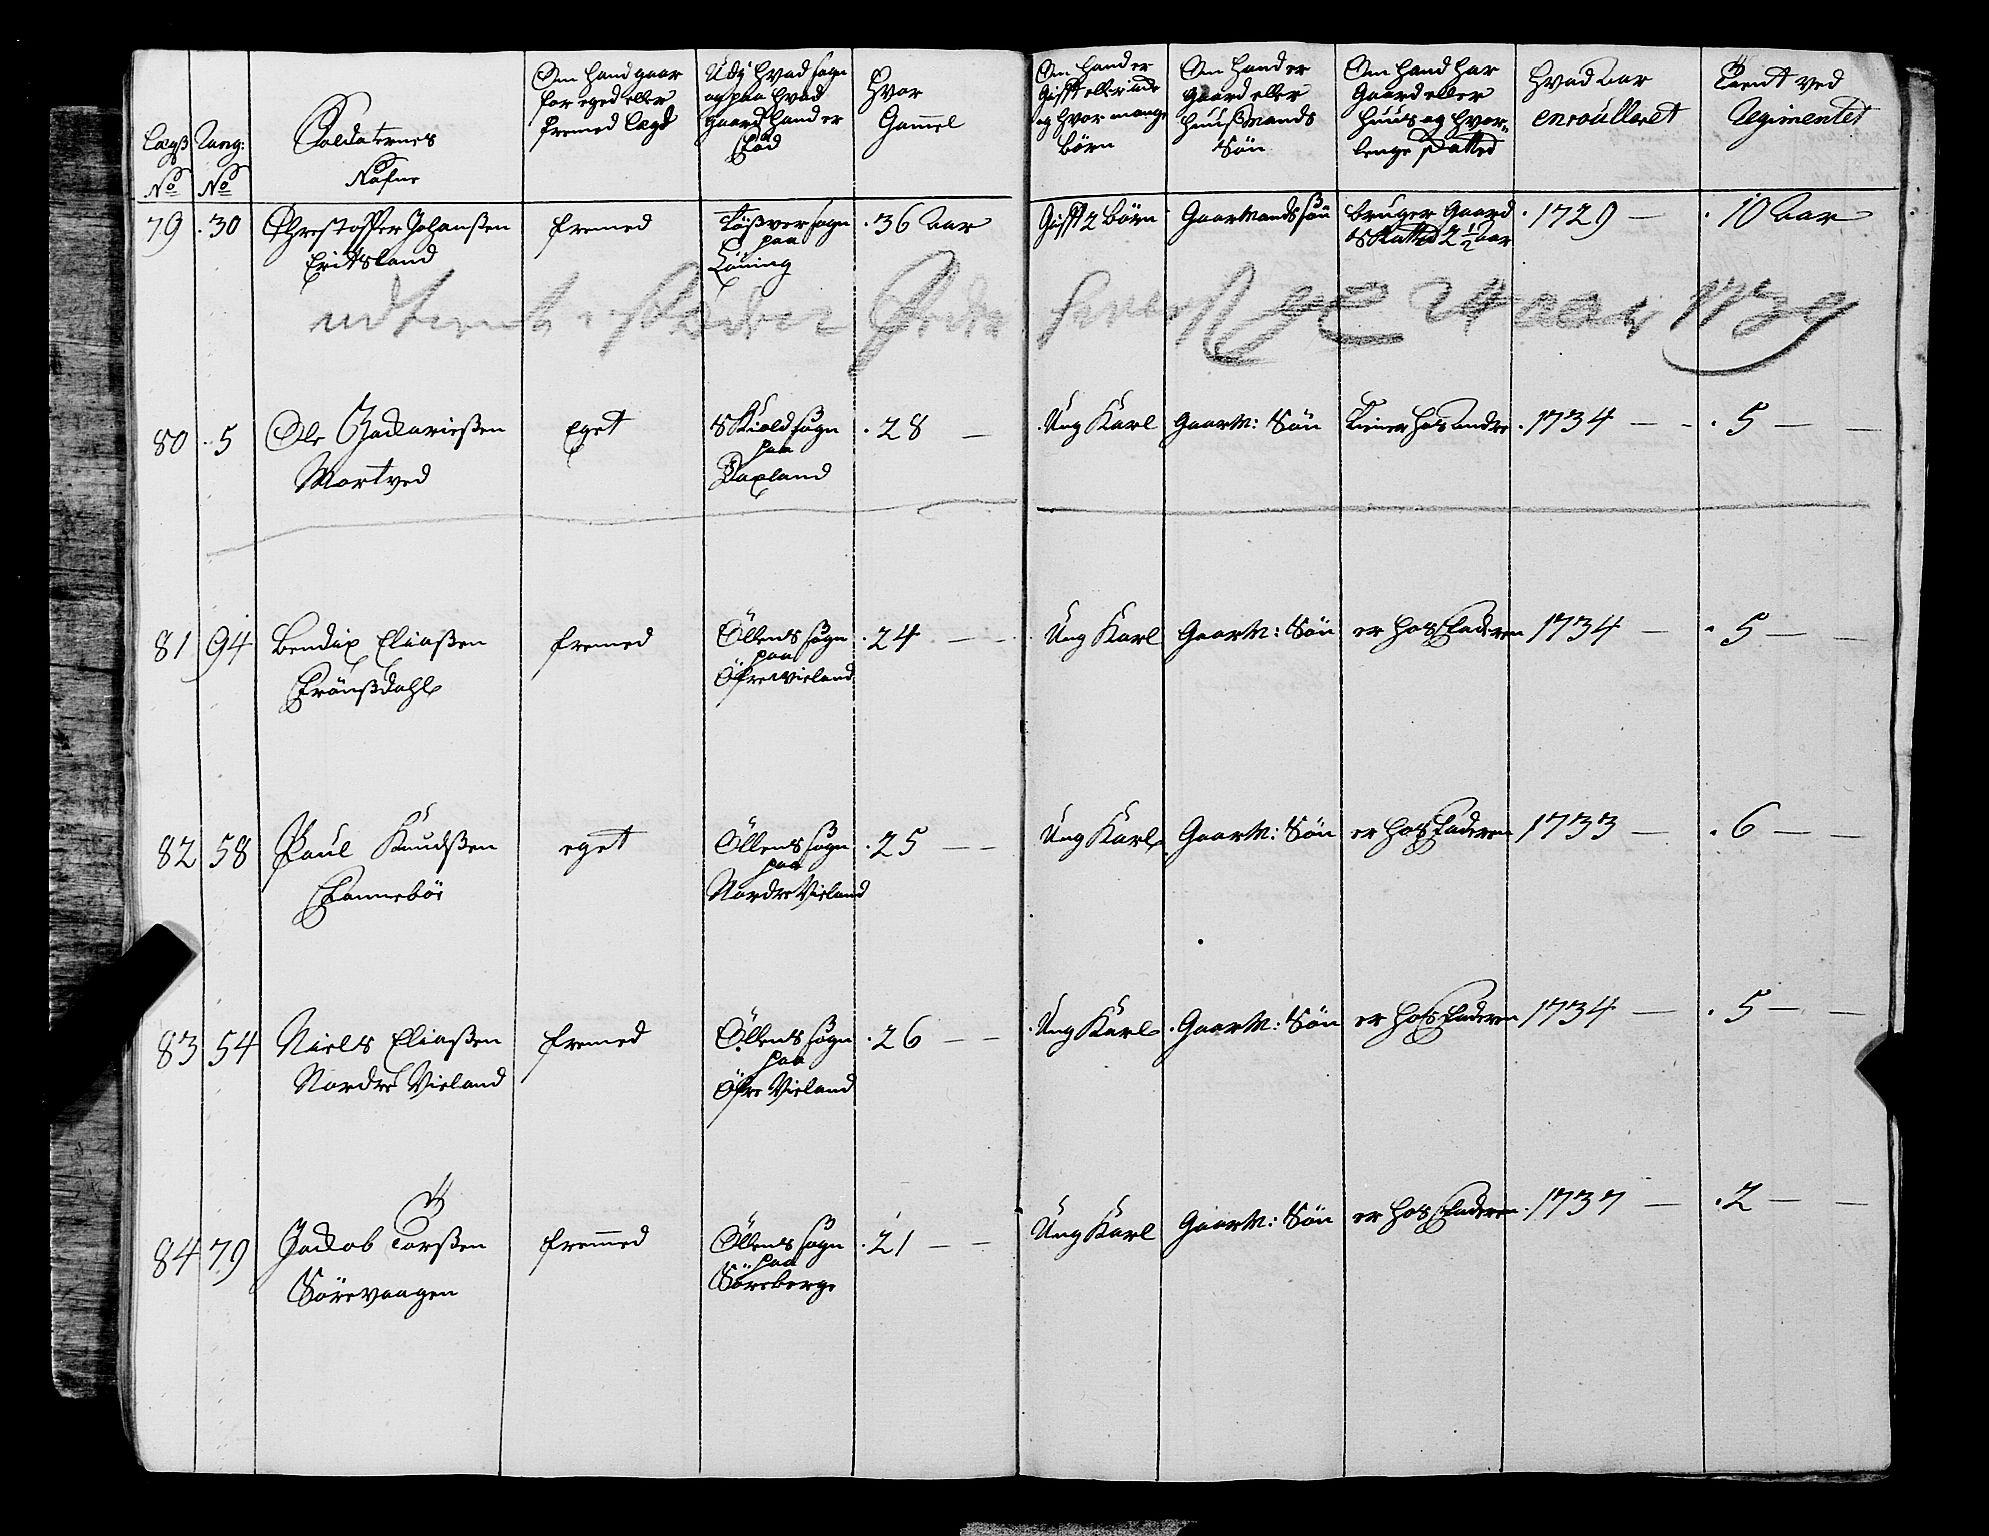 Lægs No
Rang: No
Soldaternes Nafne
Om hand gaar for eged eller fremed Lægd
Udj hvad sogn og paa hvad gaard hand er fød
Hvor Gammel
Om hand er Gifft eller icke og hvor mange børn
Om hand er Gaard eller Huusmands Søn
Om hand har Gaard eller Huus og hvor- lenge skatted
Hvad Aar enroulleret
Tient ved Regimentet
79 30 Christoffer Johanßen fremed sogn paa 36 Aar Gifft 2 børn Gaardmands søn bruger Gaard skatted 2 1/2 Aar 1729 — 10 Aar
udtient i steden Peder 24 aar 1739
80 5 Ole Zachariesßen Mortved Eget Skiold sogn paa 28 — Ung Karl Gaardm: Søn Tiener hos andre 1734 — 5 —
81 94 Bendix Eliaßen fremed Ølens sogn paa Øfre Vieland 24 — Ung Karl Gaardm: Søn er hos Faderen 1734 — 5 —
82 58 Paul Knudßen eget Ølens sogn paa Nordre Vieland 25 — Ung Karl Gaardm: Søn er hos Faderen 1733 — 6 —
83 54 Niels Eliaßen Nordre Vieland fremed Ølens sogn paa Øfre Vieland 26 — Ung Karl Gaardm: Søn er hos Faderen 1734 — 5 —
84 79 Jacob Torßen Sörevaagen fremed Ølens sogn paa Søreberge 21 — Ung Karl Gaardm: Søn er hos Faderen 1737 — 2 —